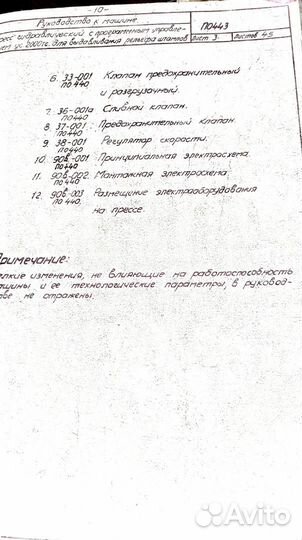 - 10 -
Руководство к машине
ПО443
есс гидравлический с программным управле-
ем ус. 2000тс. для выдавливания рельефа штампов
Лист 3. Листов 45
6. 33-001 Клапан предохранительный
ПО440 и разгрузочный.
7. 36-001а Сливной клапан.
ПО440
8. 37-001. Предохранительный клапан
ПО440
9. 38-001 Регулятор скорости.
ПО440
10. 90в.-001 Принципиальная электросхема.
ПО440
11. 90в-002 Монтажная электросхема.
ПО440
12. 90в-003 Размещение электрооборудования
ПО440. на прессе.
Примечание:
елкие изменения, не влияющие на работоспособность
ашины и ее технологические параметры, в руковод-
тве не отражены.
Avito